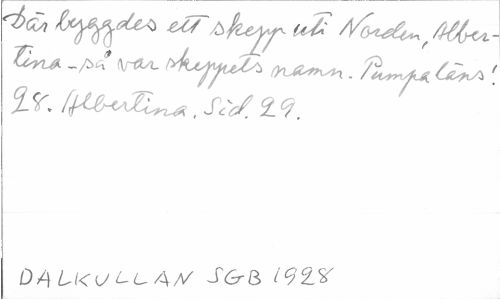 Där byggdes ett skepp uti Norden, Alber-
tina - så var skeppets namn. Pumpa läns!
28. Albertina. Sid. 29.
DALKULLAN SGB 1928